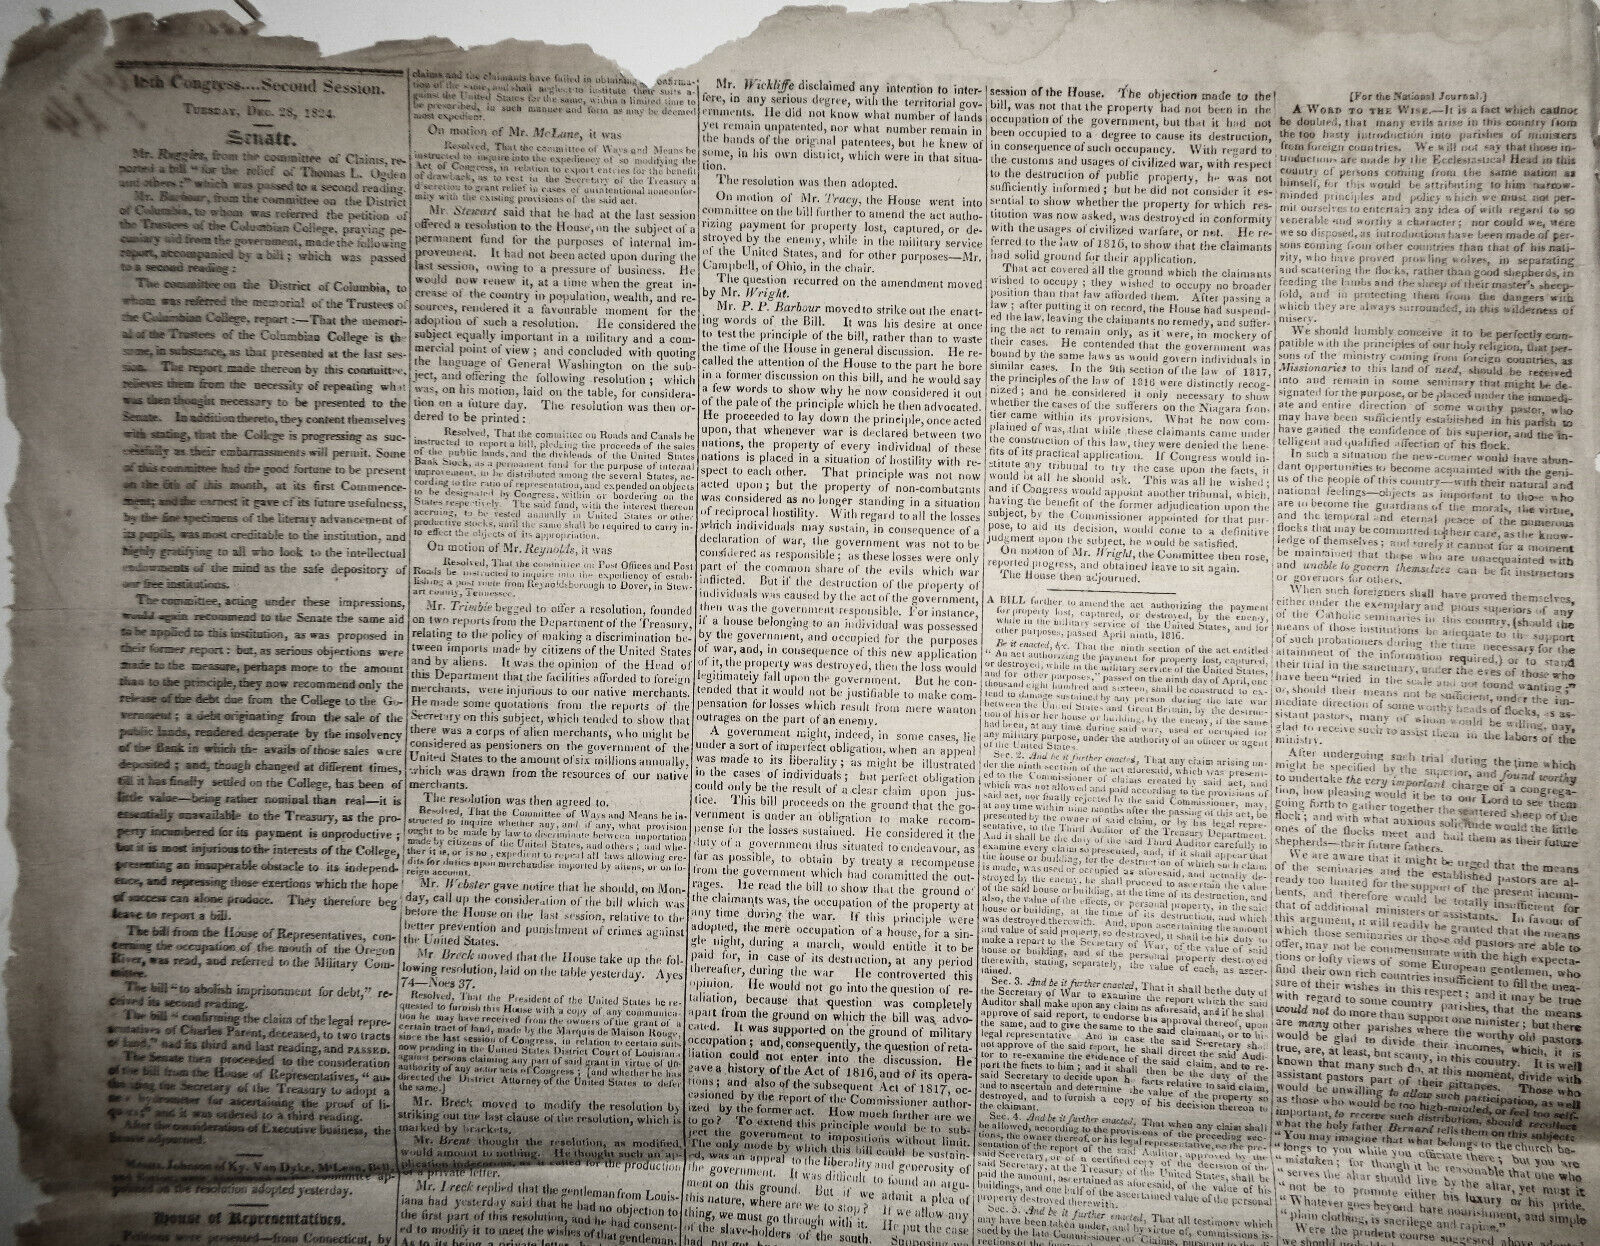 18th Congress....Second Session.
TUESDAY, DEC. 28, 1824.
Senate.
Mr. Ruggles, from the committee of Claims, re-
ported a bill "for the relief of Thomas L. Ogden
and others;" which was passed to a second reading.
Mr. Barbour, from the committee on the District
of Columbia, to whom was referred the petition of
the Trustees of the Columbian College, praying pe-
cuniary aid from the government, made the following
report, accompanied by a bill; which was passed
to a second reading:
The committee on the District of Columbia, to
whom was referred the memorial of the Trustees of
the Columbian College, report:—That the memori-
al of the Trustees of the Columbian College is the
same, in substance, as that presented at the last ses-
sion. The report made thereon by this committee,
relieves them from the necessity of repeating what
was then thought necessary to be presented to the
Senate. In addition thereto, they content themselves
with stating, that the College is progressing as suc-
cessfully as their embarrassments will permit. Some
of this committee had the good fortune to be present
on the 6th of this month, at its first Commence-
ment; and the earnest it gave of its future usefulness,
by the fine specimens of the literary advancement of
its pupils, was most creditable to the institution, and
highly gratifying to all who look to the intellectual
endowments of the mind as the safe depository of
our free institutions.
The committee, acting under these impressions,
would again recommend to the Senate the same aid
to be applied to this institution, as was proposed in
their former report: but, as serious objections were
made to the measure, perhaps more to the amount
than to the principle, they now recommend only the
release of the debt due from the College to the Go-
vernment; a debt originating from the sale of the
public lands, rendered desperate by the insolvency
of the Bank in which the avails of those sales were
deposited; and, though changed at different times,
till it has finally settled on the College, has been of
little value—being rather nominal than real—it is
essentially unavailable to the Treasury, as the pro-
perty incumbered for its payment is unproductive;
but it is most injurious to the interests of the College,
presenting an insuperable obstacle to its independ-
ence, and repressing those exertions which the hope
of success can alone produce. They therefore beg
leave to report a bill.
The bill from the House of Representatives, con-
cerning the occupation of the mouth of the Oregon
River, was read, and referred to the Military Com-
mittee.
The bill "to abolish imprisonment for debt," re-
ceived its second reading.
The bill "confirming the claim of the legal repre-
sentatives of Charles Parent, deceased, to two tracts
of land," had its third and last reading, and PASSED.
The Senate then proceeded to the consideration
of the bill from the House of Representatives, "au-
thorizing the Secretary of the Treasury to adopt a
new hydrometer for ascertaining the proof of li-
quors;" and it was ordered to a third reading.
After the consideration of Executive business, the
Senate adjourned.
Messrs. Johnson of Ky. Van Dyke, McLean, Bell,
pointed on the resolution adopted yesterday.
House of Representatives.
Petitions were presented—from Connecticut, by
claims and the claimants have failed in obtaining confirma-
tion of the same, and shall neglect to institute their suits a-
gainst the United States for the same, within a limited time to
be prescribed, in such manner and form as may be deemed
most expedient.
On motion of Mr. McLane, it was
Resolved, That the committee of Ways and Means be
instructed to inquire into the expediency of so modifying the
Act of Congress, in relation to export entries for the benefit
of drawback, as to vest in the Secretary of the Treasury a
discretion to grant relief in cases of unintentional nonconfor-
mity with the existing provisions of the said act.
Mr. Stewart said that he had at the last session
offered a resolution to the House, on the subject of a
permanent fund for the purposes of internal im-
provement. It had not been acted upon during the
last session, owing to a pressure of business. He
would now renew it, at a time when the great in-
crease of the country in population, wealth, and re-
sources, rendered it a favourable moment for the
adoption of such a resolution. He considered the
subject equally important in a military and a com-
mercial point of view; and concluded with quoting
the language of General Washington on the sub-
ject, and offering the following resolution; which
was, on his motion, laid on the table, for considera-
tion on a future day. The resolution was then or-
dered to be printed:
Resolved, That the committee on Roads and Canals be
instructed to report a bill, pledging the proceeds of the sales
of the public lands, and the dividends of the United States
Bank Stock, as a permanent fund for the purpose of internal
improvement, to be distributed among the several States, ac-
cording to the ratio of representation, and expended on objects
to be designated by Congress, within or bordering on the
States respectively. The said fund, with the interest thereon
accruing, to be vested annually in United States or other
productive stocks, until the same shall be required to carry in-
to effect the objects of its appropriation.
On motion of Mr. Reynolds, it was
Resolved, That the committee on Post Offices and Post
Roads be instructed to inquire into the expediency of estab-
lishing a post route from Reynoldsborough to Dover, in Stew-
art county, Tennessee.
Mr. Trimble begged to offer a resolution, founded
on two reports from the Department of the Treasury,
relating to the policy of making a discrimination be-
tween imports made by citizens of the United States
and by aliens. It was the opinion of the Head of
this Department that the facilities afforded to foreign
merchants, were injurious to our native merchants.
He made some quotations from the reports of the
Secretary on this subject, which tended to show that
there was a corps of alien merchants, who might be
considered as pensioners on the government of the
United States to the amount of six millions annually,
which was drawn from the resources of our native
merchants.
The resolution was then agreed to.
Resolved, That the Committee of Ways and Means be in-
structed to inquire whether any, and if any, what provision
ought to be made by law to discriminate between importation
made by citizens of the United States, and others; and whe-
ther it is, or is no, expedient to repeal all laws allowing cre-
dits for duties upon merchandise imported by aliens, or on fo-
reign account.
Mr. Webster gave notice that he should, on Mon-
day, call up the consideration of the bill which was
before the House on the last session, relative to the
better prevention and punishment of crimes against
the United States.
Mr. Breck moved that the House take up the fol-
lowing resolution, laid on the table yesterday. Ayes
74—Noes 37.
Resolved, That the President of the United States be re-
quested to furnish this House with a copy of any communica-
tion he may have received from the owners of the grant of a
certain tract of land, made by the Marquis de Maison Rouge,
since the last session of Congress, in relation to certain suits
now pending in the United States District Court of Louisiana
against persons claiming any part of said grant in virtue of the
authority of any act or acts of Congress; [and whether he has
directed the District Attorney of the United States to defend
the same.]
Mr. Breck moved to modify the resolution by
striking out the last clause of the resolution, which is
marked by brackets.
Mr. Brent thought the resolution, as modified,
would amount to nothing. He thought such an ap-
plication indecorous, as it called for the production
of a private letter.
Mr. Breck replied that the gentleman from Louis-
iana had yesterday said that he had no objection to
the first part of this resolution, and he had consent-
ed to modify it to meet the wishes of that gentleman.
As to its being a private letter,
Mr. Wickliffe disclaimed any intention to inter-
fere, in any serious degree, with the territorial gov-
ernments. He did not know what number of lands
yet remain unpatented, nor what number remain in
the hands of the original patentees, but he knew of
some, in his own district, which were in that situa-
tion.
The resolution was then adopted.
On motion of Mr. Tracy, the House went into
committee on the bill further to amend the act autho-
rizing payment for property lost, captured, or de-
stroyed by the enemy, while in the military service
of the United States, and for other purposes—Mr.
Campbell, of Ohio, in the chair.
The question recurred on the amendment moved
by Mr. Wright.
Mr. P. P. Barbour moved to strike out the enact-
ing words of the Bill. It was his desire at once
to test the principle of the bill, rather than to waste
the time of the House in general discussion. He re-
called the attention of the House to the part he bore
in a former discussion on this bill, and he would say
a few words to show why he now considered it out
of the pale of the principle which he then advocated.
He proceeded to lay down the principle, once acted
upon, that whenever war is declared between two
nations, the property of every individual of these
nations is placed in a situation of hostility with re-
spect to each other. That principle was not now
acted upon; but the property of non-combatants
was considered as no longer standing in a situation
of reciprocal hostility. With regard to all the losses
which individuals may sustain, in consequence of a
declaration of war, the government was not to be
considered as responsible; as these losses were only
part of the common share of the evils which war
inflicted. But if the destruction of the property of
individuals was caused by the act of the government,
then was the government responsible. For instance,
if a house belonging to an individual was possessed
by the government, and occupied for the purposes
of war, and, in consequence of this new application
of it, the property was destroyed, then the loss would
legitimately fall upon the government. But he con-
tended that it would not be justifiable to make com-
pensation for losses which result from mere wanton
outrages on the part of an enemy.
A government might, indeed, in some cases, lie
under a sort of imperfect obligation, when an appeal
was made to its liberality; as might be illustrated
in the cases of individuals; but perfect obligation
could only be the result of a clear claim upon jus-
tice. This bill proceeds on the ground that the go-
vernment is under an obligation to make recom-
pense for the losses sustained. He considered it the
duty of a government thus situated to endeavour, as
far as possible, to obtain by treaty a recompense
from the government which had committed the out-
rages. He read the bill to show that the ground of
the claimants was, the occupation of the property at
any time during the war. If this principle were
adopted, the mere occupation of a house, for a sin-
gle night, during a march, would entitle it to be
paid for, in case of its destruction, at any period
thereafter, during the war He controverted this
opinion. He would not go into the question of re-
taliation, because that question was completely
apart from the ground on which the bill was advo-
cated. It was supported on the ground of military
occupation; and, consequently, the question of reta-
liation could not enter into the discussion. He
gave a history of the Act of 1816, and of its opera-
tions; and also of the subsequent Act of 1817, oc-
casioned by the report of the Commissioner author-
ized by the former act. How much further are we
to go? To extend this principle would be to sub-
ject the government to impositions without limit.
The only mode by which this bill could be sustain-
ed, was an appeal to the liberality and generosity of
the government. It was difficult to found an argu-
ment on this ground. But if we admit a plea of
this nature, where are we to stop? If we allow any
thing, we must go through with it. He put the case
of the slave-holders of the south. Supposing we
session of the House. The objection made to the
bill, was not that the property had not been in the
occupation of the government, but that it had not
been occupied to a degree to cause its destruction,
in consequence of such occupancy. With regard to
the customs and usages of civilized war, with respect
to the destruction of public property, he was not
sufficiently informed; but he did not consider it es-
sential to show whether the property for which res-
titution was now asked, was destroyed in conformity
with the usages of civilized warfare, or not. He re-
ferred to the law of 1816, to show that the claimants
had solid ground for their application.
That act covered all the ground which the claimants
wished to occupy; they wished to occupy no broader
position than that law afforded them. After passing a
law; after putting it on record, the House had suspend-
ed the law, leaving the claimants no remedy, and suffer-
ing the act to remain only, as it were, in mockery of
their cases. He contended that the government was
bound by the same laws as would govern individuals in
similar cases. In the 9th section of the law of 1817,
the principles of the law of 1816 were distinctly recog-
nized; and he considered it only necessary to show
whether the cases of the sufferers on the Niagara fron-
tier came within its provisions. What he now com-
plained of was, that while these claimants came under
the construction of this law, they were denied the bene-
fits of its practical application. If Congress would in-
stitute any tribunal to try the case upon the facts, it
would be all he should ask. This was all he wished;
and if Congress would appoint another tribunal, which,
having the benefit of the former adjudication upon the
subject, by the Commissioner appointed for that pur-
pose, to aid its decision, would come to a definitive
judgment upon the subject, he would be satisfied.
On motion of Mr. Wright, the Committee then rose,
reported progress, and obtained leave to sit again.
The House then adjourned.
A BILL further to amend the act authorizing the payment
for property lost, captured, or destroyed, by the enemy,
while in the military service of the United States, and for
other purposes, passed April ninth, 1816.
Be it enacted, &c. That the ninth section of the act entitled
"An act authorizing the payment for property lost, captured,
or destroyed, while in the military service of the United States,
and for other purposes," passed on the ninth day of April, one
thousand eight hundred and sixteen, shall be construed to ex-
tend to damage sustained by any person during the late war
between the United States and Great Britain, by the destruc-
tion of his or her house or building, by the enemy, if the same
had been, at any time during said war, used or occupied for
any military purpose, under the authority of an officer or agent
of the United States.
Sec. 2. And be it further enacted, That any claim arising un-
der the ninth section of the act aforesaid, which was present-
ed to the Commissioner of claims created by said act, and
which was not allowed and paid according to the provisions of
said act, nor finally rejected by the said Commissioner, may,
at any time within nine months after the passing of this act, be
presented by the owner of said claim, or by his legal repre-
sentative, to the Third Auditor of the Treasury Department.
And it shall be the duty of the said Third Auditor carefully to
examine every claim so presented, and, if it shall appear that
the house or building, for the destruction of which such claim
is made, was used or occupied as aforesaid, and actually de-
stroyed by the enemy, he shall proceed to ascertain the value
of the said house or building, at the time of its destruction, and
also, the value of the effects, or personal property, in the said
house or building, at the time of its destruction, and which
was destroyed therewith. And, upon ascertaining the amount
and value of said property, so destroyed, it shall be his duty to
make a report to the Secretary of War, of the value of said
house or building, and of the personal property destroyed
therewith, stating, separately, the value of each, as ascer-
tained.
Sec. 3. And be it further enacted, That it shall be the duty of
the Secretary of War to examine the report which the said
Auditor shall make upon any claim as aforesaid, and if he shall
approve of said report, to endorse his approval thereof, upon
the same, and to give the same to the said claimant, or to his
legal representative. And in case the said Secretary shall
not approve of the report, he shall direct the said Audi-
tor to re-examine the evidence of the said claim, and to re-
port the facts to him; and it shall then be the duty of the
said Secretary to decide upon the facts relative to said claim,
and to ascertain and determine the value of the property so
destroyed, and to furnish a copy of his decision thereon to
the claimant.
Sec. 4. And be it further enacted, That when any claim shall
be allowed, according to the provisions of the preceding sec-
tions, the owner thereof, or his legal representative, on the pre-
sentation of the report of said Auditor, approved by the
said Secretary, or of a certified copy of the decision of the
said Secretary, at the Treasury of the United States, shall be
paid the amount, as ascertained as aforesaid, of the value of his
buildings, and one half of the ascertained value of the personal
property destroyed therewith.
Sec. 5. And be it further enacted, That all testimony which
may have been taken, under, and by virtue of, commissions
issued by the late Commissioner of Claims, pursuant to the di-
[For the National Journal.]
A WORD TO THE WISE.—It is a fact which cannot
be doubted, that many evils arise in this country from
the too hasty introduction into parishes of ministers
from foreign countries. We will not say that those in-
troductions are made by the Ecclesiastical Head in this
country of persons coming from the same nation as
himself, for this would be attributing to him narrow-
minded principles and policy which we must not per-
mit ourselves to entertain any idea of with regard to so
venerable and worthy a character; nor could we, were
we so disposed, as introductions have been made of per-
sons coming from other countries than that of his nati-
vity, who have proved prowling wolves, in separating
and scattering the flocks, rather than good shepherds, in
feeding the lambs and the sheep of their master's sheep-
fold, and in protecting them from the dangers with
which they are always surrounded, in this wilderness of
misery.
We should humbly conceive it to be perfectly com-
patible with the principles of our holy religion, that per-
sons of the ministry coming from foreign countries, as
Missionaries to this land of need, should be received
into and remain in some seminary that might be de-
signated for the purpose, or be placed under the immedi-
ate and entire direction of some worthy pastor, who
may have been sufficiently established in his parish to
have gained the confidence of his superior, and the in-
telligent and qualified affection of his flock.
In such a situation the new-comer would have abun-
dant opportunities to become acquainted with the geni-
us of the people of this country—with their natural and
national feelings—objects as important to those who
are to become the guardians of the morals, the virtue,
and the temporal and eternal peace of the numerous
flocks that may be committed to their care, as the know-
ledge of themselves; and surely it cannot for a moment
be maintained that those who are unacquainted with
and unable to govern themselves can be fit instructors
or governors for others.
When such foreigners shall have proved themselves,
either under the exemplary and pious superiors of any
of the Catholic seminaries in this country, (should the
means of those institutions be adequate to the support
of such probationers during the time necessary for the
attainment of the information required,) or to stand
their trial in the sanctuary, under the eyes of those who
have been "tried in the scale and not found wanting;"
or, should their means not be sufficient, under the im-
mediate direction of some worthy heads of flocks, as as-
sistant pastors, many of whom would be willing, nay,
glad to receive such to assist them in the labors of the
ministry.
After undergoing such trial during the time which
might be specified by the superior, and found worthy
to undertake the very important charge of a congrega-
tion, how pleasing would it be to our Lord to see them
going forth to gather together the scattered sheep of the
flock; and with what anxious solicitude would the little
ones of the flocks meet and hail them as their future
shepherds—their future fathers.
We are aware that it might be urged that the means
of the seminaries and the established pastors are al-
ready too limited for the support of the present incum-
bents, and therefore would be totally insufficient for
that of additional ministers or assistants. In favour of
this argument, it will readily be granted that the means
which those seminaries or those old pastors are able to
offer, may not be commensurate with the high expecta-
tions or lofty views of some European gentlemen, who
find their own rich countries insufficient to fill the mea-
sure of their wishes in this respect; and it may be true
with regard to some country parishes, that the means
would not do more than support one minister; but there
are many other parishes where the worthy old pastors
would be glad to divide their incomes, which, it is
true, are, at least, but scanty, in this country. It is well
known that many such do, at this moment, divide with
assistant pastors part of their pittances. Those who
would be unwilling to allow such participation, as well
as those who would be too high-minded, or feel too self-
important, to receive such distribution, should recollect
what the holy father Bernard tells them on this subject:
"You may imagine that what belongs to the church be-
"longs to you while you officiate there; but you are
"mistaken; for though it be reasonable that one who
"serves the altar should live by the altar, yet must it
"not be to promote either his luxury or his pride.
"Whatever goes beyond bare nourishment, and simple
"plain clothing, is sacrilege and rapine."
Were the prudent course suggested above